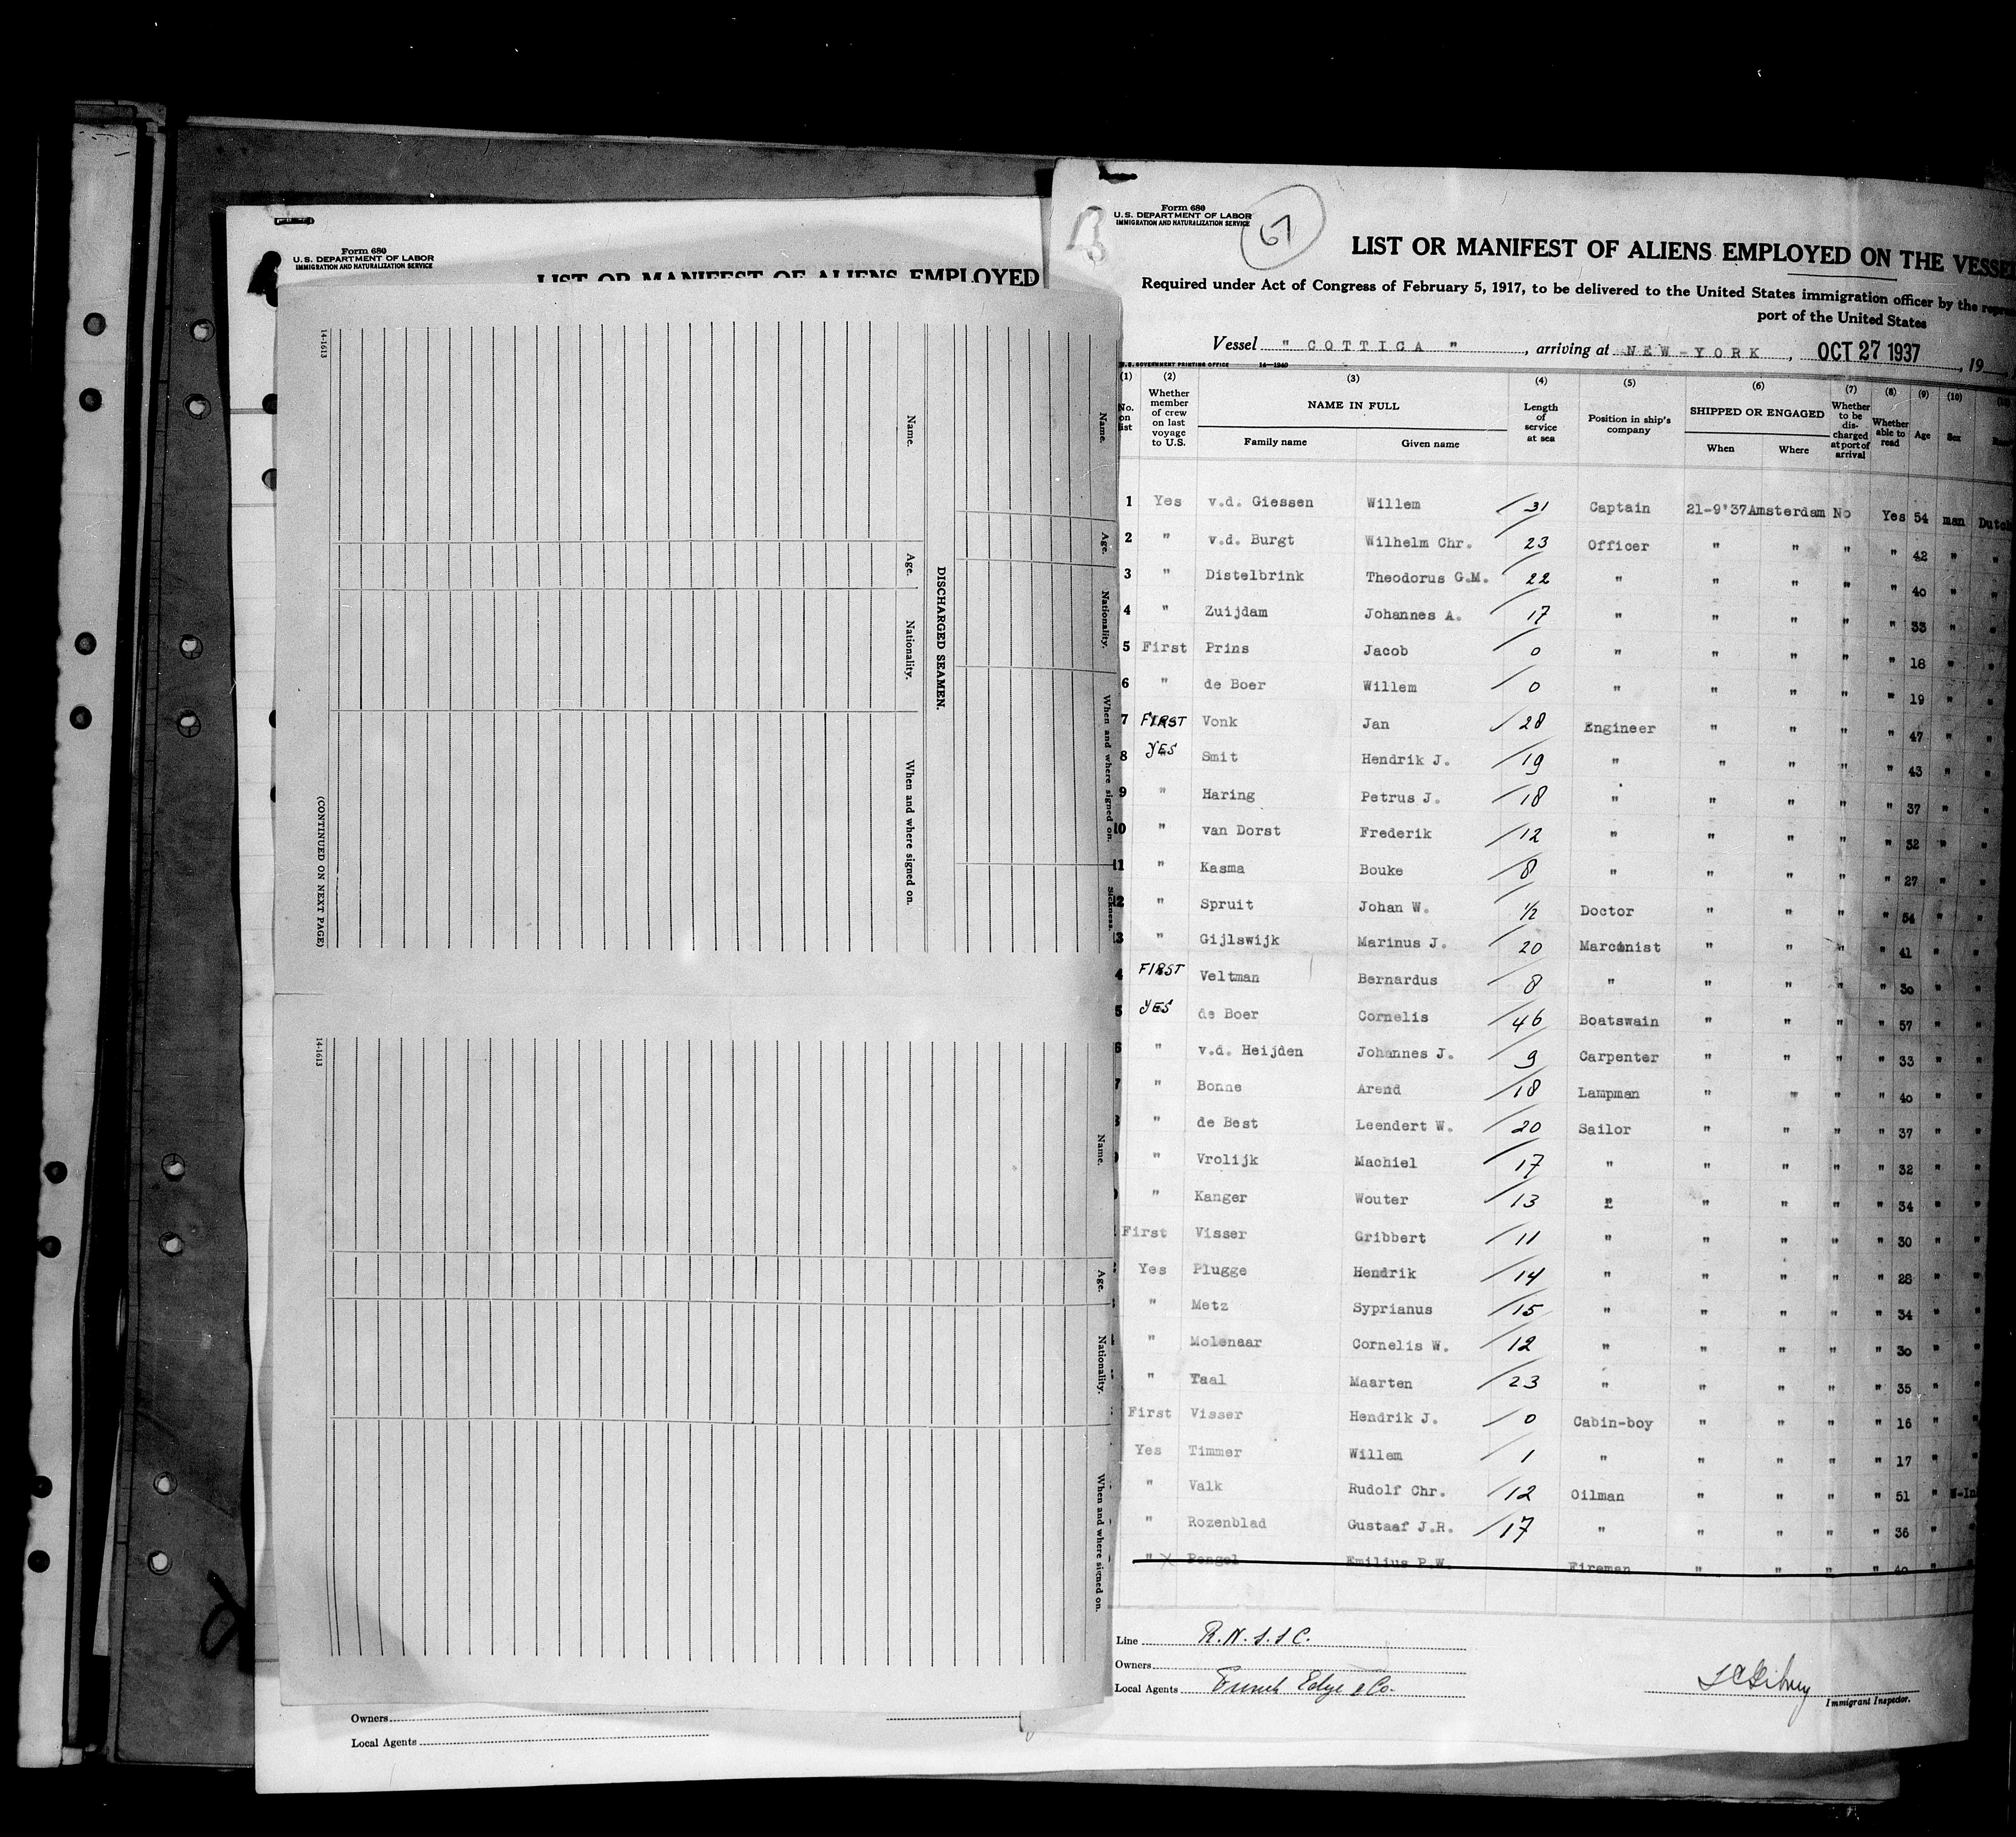 Form 680
U.S. DEPARTMENT OF LABOR
IMMIGRATION AND NATURALIZATION SERVICE
LIST OR MANIFEST OF ALIENS EMPLOYED
14-1613
Name.
Age.
Nationality.
When and where signed on.
Sickness.
DISCHARGED SEAMEN.
Name.
Age.
Nationality.
When and where signed on.
(CONTINUED ON NEXT PAGE)
14-1613
Name.
Age.
Nationality.
When and where signed on.
Owners
Local Agents
Form 680
U.S. DEPARTMENT OF LABOR
IMMIGRATION AND NATURALIZATION SERVICE
67
LIST OR MANIFEST OF ALIENS EMPLOYED ON THE VESSEL
Required under Act of Congress of February 5, 1917, to be delivered to the United States immigration officer by the
port of the United States
Vessel " COTTICA ", arriving at NEW-YORK, OCT 27 1937, 19
U.S. GOVERNMENT PRINTING OFFICE 14-1240
(1) (2) (3) (4) (5) (6) (7) (8) (9) (10)
No. on list Whether member of crew on last voyage to U.S. NAME IN FULL Family name Given name Length of service at sea Position in ship's company SHIPPED OR ENGAGED When Where Whether to be discharged at port of arrival Whether able to read Age Sex
1 Yes v.d. Giessen Willem 31 Captain 21-9'37 Amsterdam No Yes 54 man Dutch
2 " v.d. Burgt Wilhelm Chr. 23 Officer " " " " 42 " "
3 " Distelbrink Theodorus G.M. 22 " " " " " 40 " "
4 " Zuijdam Johannes A. 17 " " " " " 33 " "
5 First Prins Jacob 0 " " " " " 18 " "
6 " de Boer Willem 0 " " " " " 19 " "
7 FIRST Vonk Jan 28 Engineer " " " " 47 " "
8 YES Smit Hendrik J. 19 " " " " " 43 " "
9 " Haring Petrus J. 18 " " " " " 37 " "
10 " van Dorst Frederik 12 " " " " " 32 " "
11 " Kasma Bouke 8 " " " " " 27 " "
12 " Spruit Johan W. 1/2 Doctor " " " " 54 " "
3 " Gijlswijk Marinus J. 20 Marconist " " " " 41 " "
4 FIRST Veltman Bernardus 8 " " " " " 30 " "
5 YES de Boer Cornelis 46 Boatswain " " " " 57 " "
6 " v.d. Heijden Johannes J. 9 Carpenter " " " " 33 " "
7 " Bonne Arend 18 Lampman " " " " 40 " "
8 " de Best Leendert W. 20 Sailor " " " " 37 " "
" Vrolijk Machiel 17 " " " " " 32 " "
" Kanger Wouter 13 " " " " " 34 " "
First Visser Gribbert 11 " " " " " 30 " "
Yes Plugge Hendrik 14 " " " " " 28 " "
" Metz Syprianus 15 " " " " " 34 " "
" Molenaar Cornelis W. 12 " " " " " 30 " "
" Taal Maarten 23 " " " " " 35 " "
First Visser Hendrik J. 0 Cabin-boy " " " " 16 " "
Yes Timmer Willem 1 " " " " " 17 " "
" Valk Rudolf Chr. 12 Oilman " " " " 51 "
" Rozenblad Gustaaf J.R. 17 " " " " " 36 " "
" X Pengel Emilius P.W. Fireman " " " " 40 "
Line R.N.S.S C.
Owners
Local Agents Funch Edye & Co.
Immigrant Inspector.